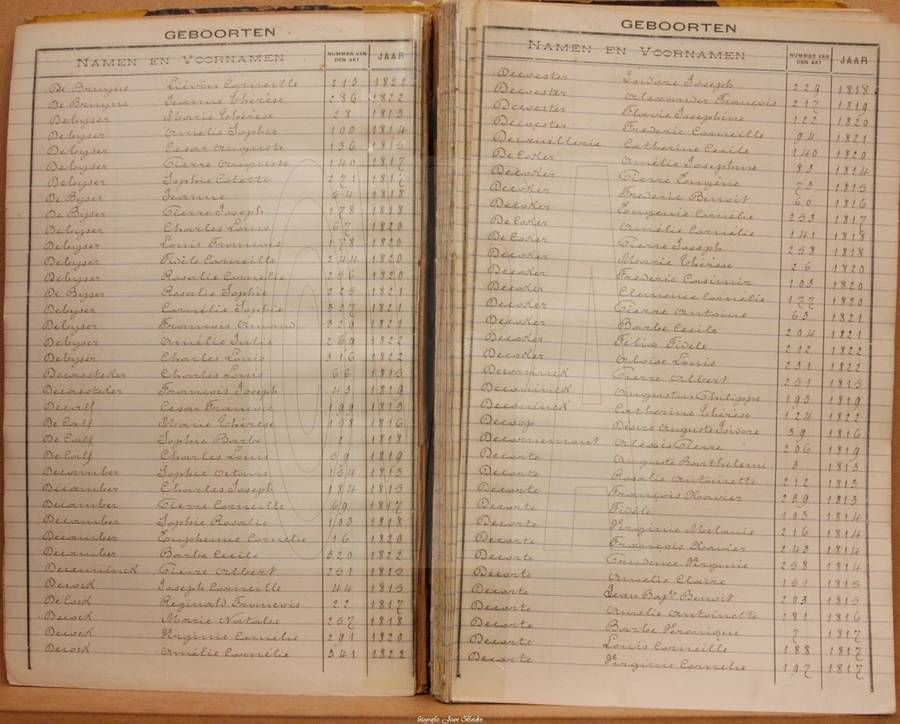 GEBOORTEN
NAMEN EN VOORNAMEN NUMMER VAN DEN AKT JAAR
De Bruyne Liévin Corneille 213 1822
De Bruyne Jeanne Thérèse 286 1822
Debuyser Marie Thérèse 28 1813
Debuyser Amelie Sophie 100 1814
Debuyser Cesar Auguste 136 1815
Debuyser Pierre Auguste 140 1817
Debuyser Sophie Colette 271 1817
De Byser Jeanne 54 1818
De Byser Pierre Joseph 178 1818
Debuyser Charles Louis 67 1820
Debuyser Louis François 178 1820
Debuyser Fidèle Corneille 244 1820
Debuyser Rosalie Cornélie 256 1820
De Byser Rosalie Sophie 225 1821
Debuyser Cornélie Sophie 327 1821
Debuyser François Amand 329 1821
Debuyser Amélie Julie 269 1822
Debuyser Charles Louis 316 1822
Decaesteker Charles Louis 66 1815
Decaesteker François Joseph 43 1819
Decalf Cesar François 199 1815
De Calf Marie Thérèse 158 1816
De Calf Sophie Barbe 2 1818
De Calf Charles Louis 59 1819
Decamber Sophie Octavie 154 1813
Decamber Charles Joseph 184 1815
Decamber Pierre Corneille 69 1817
Decamber Sophie Rosalie 103 1818
Decamber Euphemie Cornelie 16 1820
Decamber Barbe Cecile 320 1822
Deceuninck Pierre Albert 251 1815
Decock Joseph Corneille 44 1815
De Cock Reginald François 22 1817
Decock Marie Natalie 257 1818
Decock Virginie Cornélie 291 1820
Decock Amélie Cornélie 341 1822
GEBOORTEN
NAMEN EN VOORNAMEN NUMMER VAN DEN AKT JAAR
Decoester Isidore Joseph 229 1818
Decoester Alexander François 217 1819
Decoester Flavie Josephine 122 1820
Decoester Frederic Corneille 94 1821
Catherine Cecile 140 1820
De Coker Amélie Josephine 82 1814
Decoker Pierre Eugène 73 1815
Decoker Frederic Benoit 60 1816
Decoker Eugenie Cornelie 253 1817
De Coker Amélie Cornélie 141 1818
De Coker Pierre Joseph 258 1818
Decoker Marie Thérèse 26 1820
Decoker Frederic Casimir 103 1820
Decoker Clemence Cornélie 177 1820
Decoker Pierre Antoine 63 1821
Decoker Barbe Cecile 204 1821
Decoker Felix Fidèle 212 1822
Decoker Aloise Louis 231 1822
Deconinck Pierre Albert 251 1815
Deconinck Augustin Philippe 193 1819
Deconinck Catherine Thérèse 124 1822
Decoop Désiré Auguste Isidore 39 1816
Alexis Pierre 206 1819
Decorte Auguste Barthelemi 3 1813
Decorte Rosalie Antoinette 212 1813
Decorte François Xavier 259 1813
Decorte Fidèle 103 1814
Decorte Virginie Melanie 216 1814
Decorte François Xavier 243 1814
Decorte Prudence Virginie 258 1814
Decorte Amelie Claire 151 1815
Decorte Jean Bapte Benoit 203 1815
Decorte Amelie Antoinette 181 1816
Decorte Barbe Veronique 7 1817
Decorte Louis Corneille 188 1817
Decorte Virginie Cornelie 197 1817
fotografie: Joan Boidin